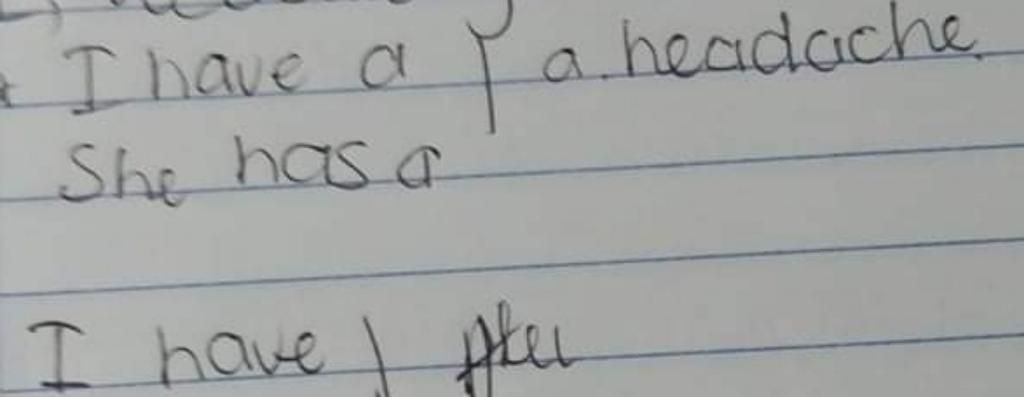 I have a } a headache
She has a
I have